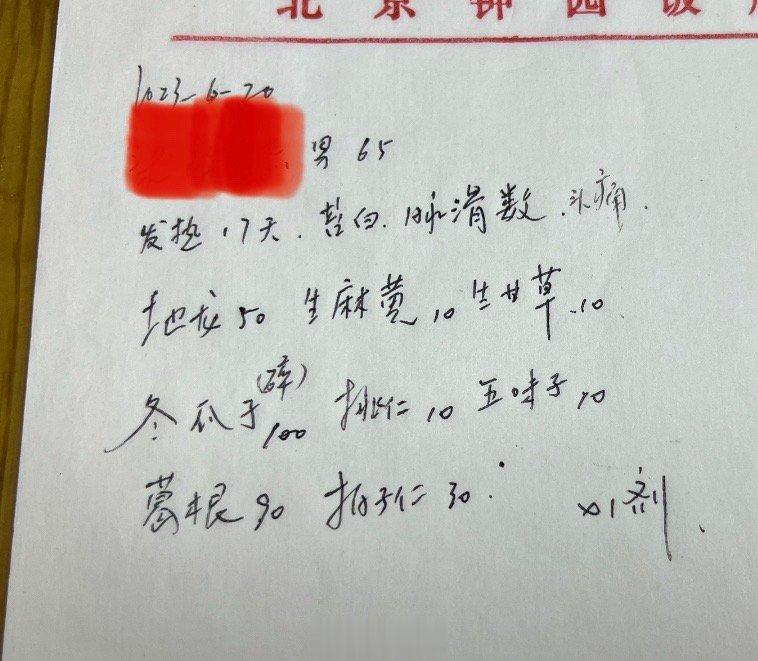 北京钟园饭
2023-6-20
男 65
发热17天.苔白.脉滑数.头痛.
地龙50 生麻黄10 生甘草10
冬瓜子(碎)100 桃仁10 五味子10
葛根90 柏子仁30. x1剂.